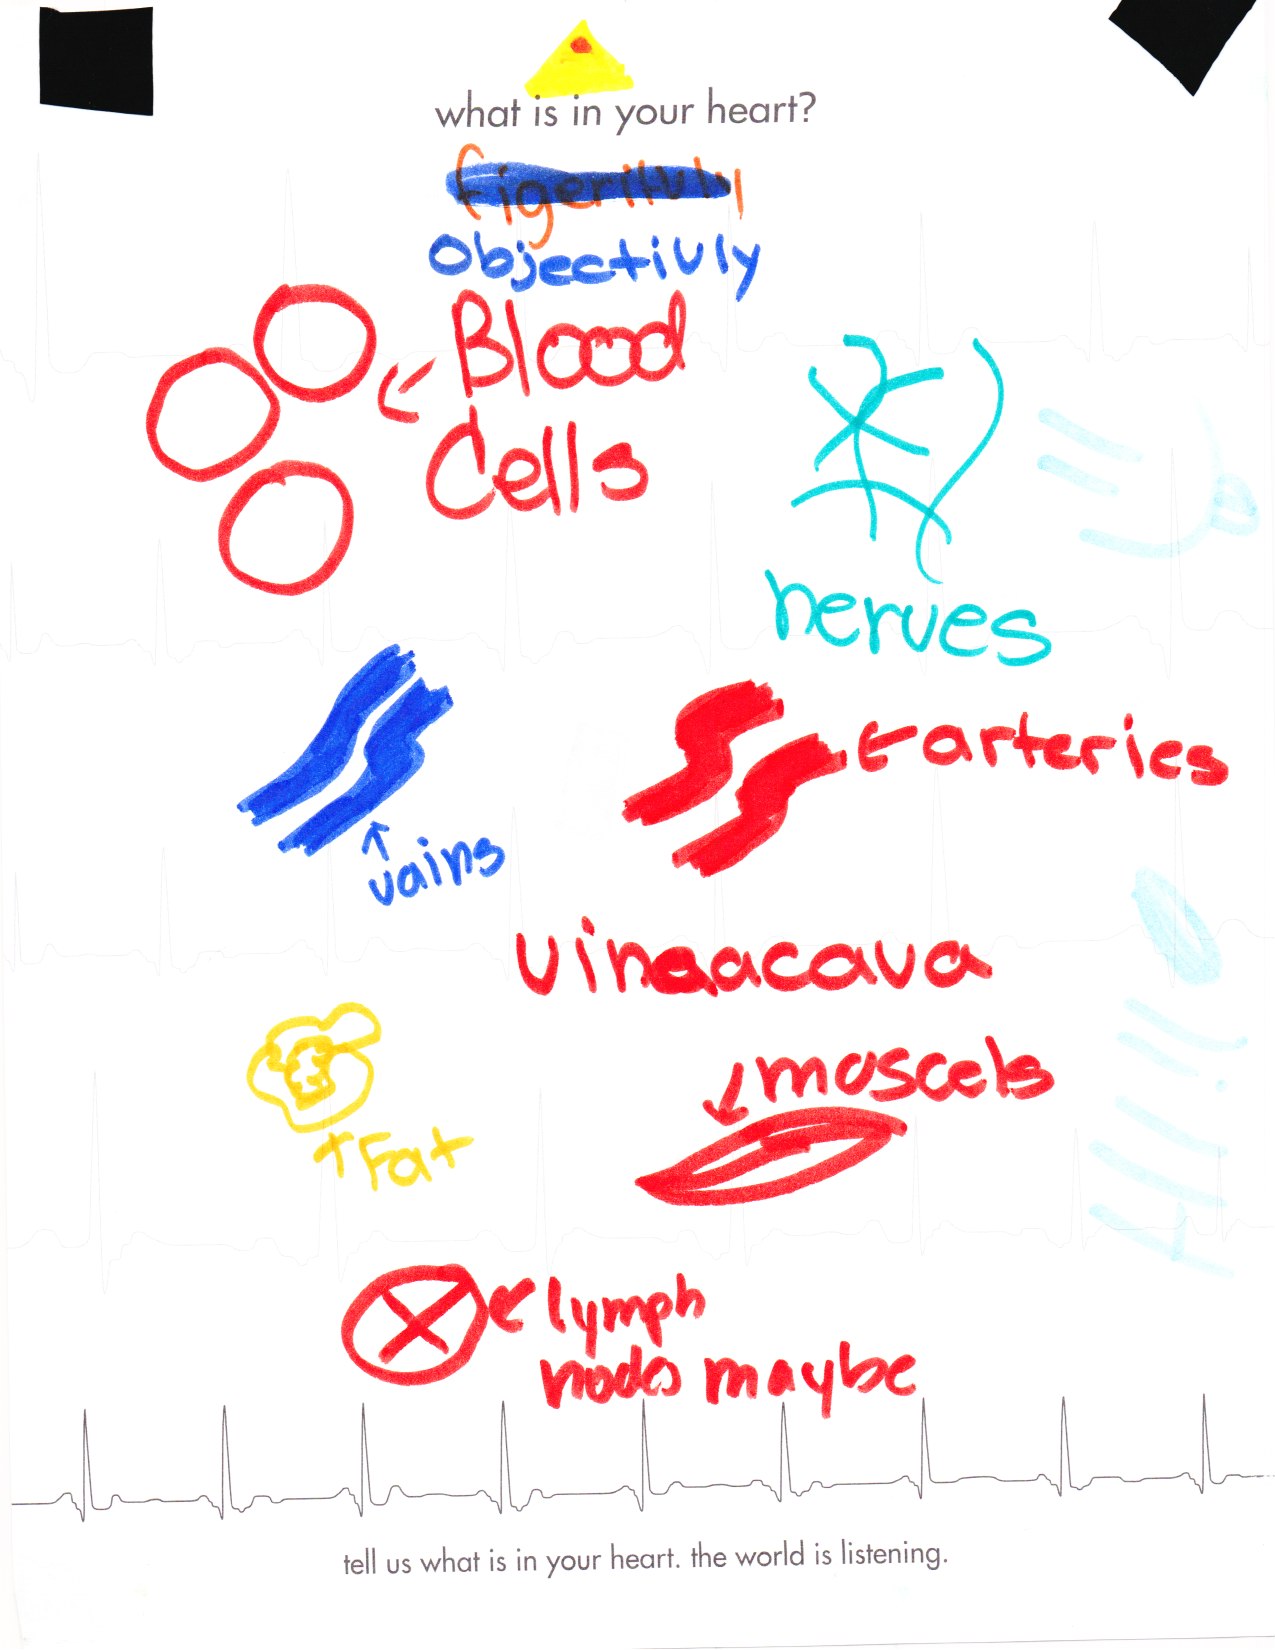 what is in your heart?
figeritivly
Objectivly
Blood
Cells
nerves
arteries
vains
vinaacava
moscels
Fat
lymph
nodes maybe
tell us what is in your heart. the world is listening.